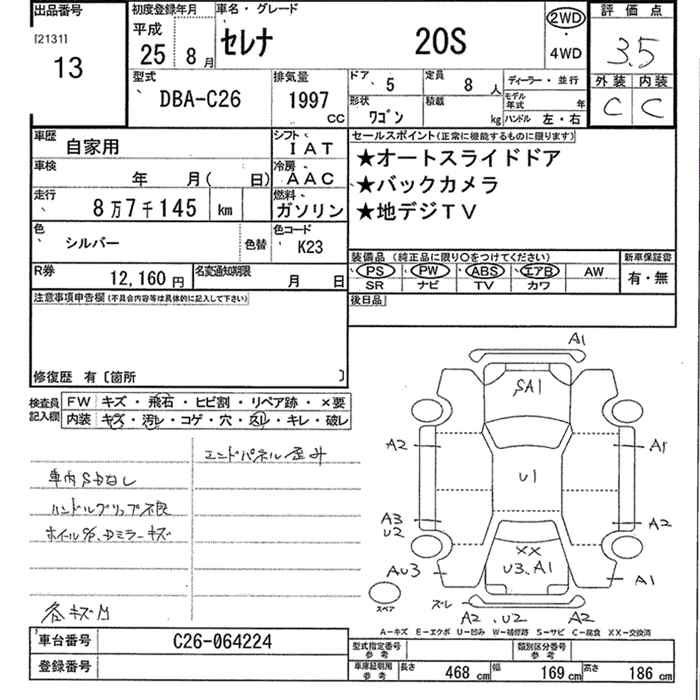 出品番号
[2131]
13
初度登録年月
平成
25 8 月
車名・グレード
セレナ 20S
2WD
・
4WD
評価点
3.5
外装 内装
C C
型式
DBA-C26
排気量
1997 cc
ドア
5
形状
ワゴン
定員
8 人
積載
kg
ディーラー・並行
モデル年式 年
ハンドル 左・右
車歴
自家用
シフト
IAT
車検
年 月( 日)
冷房
AAC
走行
8万7千145 km
燃料
ガソリン
色
シルバー
色替
色コード
K23
R券
12,160 円
名変通知期限
月 日
セールスポイント(正常に機能するものに限ります)
★オートスライドドア
★バックカメラ
★地デジTV
装備品 (純正品に限り○をつけてください)
新車保証書
PS PW ABS エアB AW
SR ナビ TV カワ
有・無
後日品
注意事項申告欄(不具合内容等は具体的に記入して下さい)
修復歴 有〔箇所 〕
検査員記入欄
FW キズ・飛石・ヒビ割・リペア跡・×要
内装 キズ・汚レ・コゲ・穴・返レ・キレ・破レ
エンドパネル歪み
車内SDなし
ハンドルグリップ不良
ホイル%、Dミラーキズ
各キズ凹
A1
SA1
A2
A1
U1
A3
U2
A2
XX
U3.A1
AU3
A1
スペア
ズレ
A2.U2
A2
A-キズ E-エクボ U-凹み W-補修跡 S-サビ C-腐食 XX-交換済
車台番号
C26-064224
登録番号
型式指定番号
参考
類別区分番号
参考
車庫証明用
参考
長さ 468 cm
幅 169 cm
高さ 186 cm